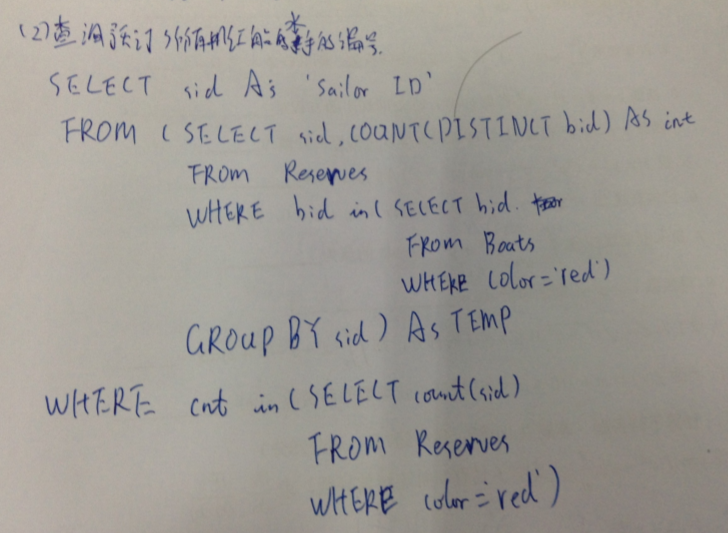 (2)查询预订了所有红色船的水手的编号.
SELECT sid As 'Sailor ID'
FROM (SELECT sid, COUNT(DISTINCT bid) As int
FROM Reserves
WHERE bid in (SELECT bid.
FROM Boats
WHERE color='red')
GROUP BY sid) As TEMP
WHERE cnt in (SELECT count(sid)
FROM Reserves
WHERE color='red')